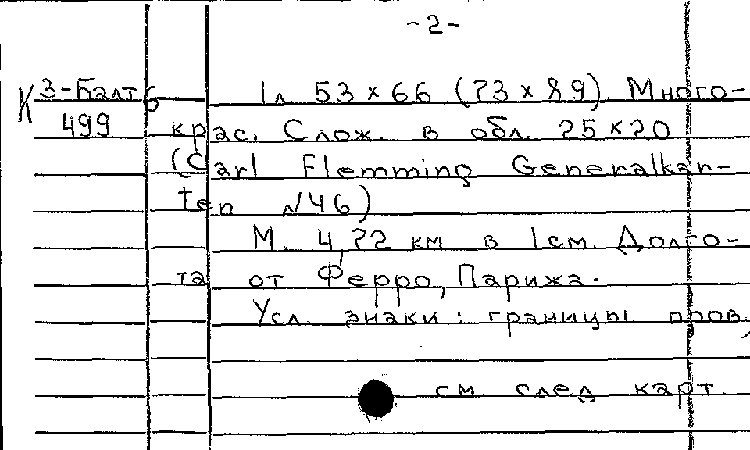 -2-
К 3-Балт 6 1л 53×66 (73×89) Много-
499 крас. Слож. в обл. 25×20
(Carl Flemming Generalkar-
ten №46)
М. 4,72 км в 1см. Долго-
та от Ферро, Парижа.
Усл. знаки: границы пров.,
см след карт.